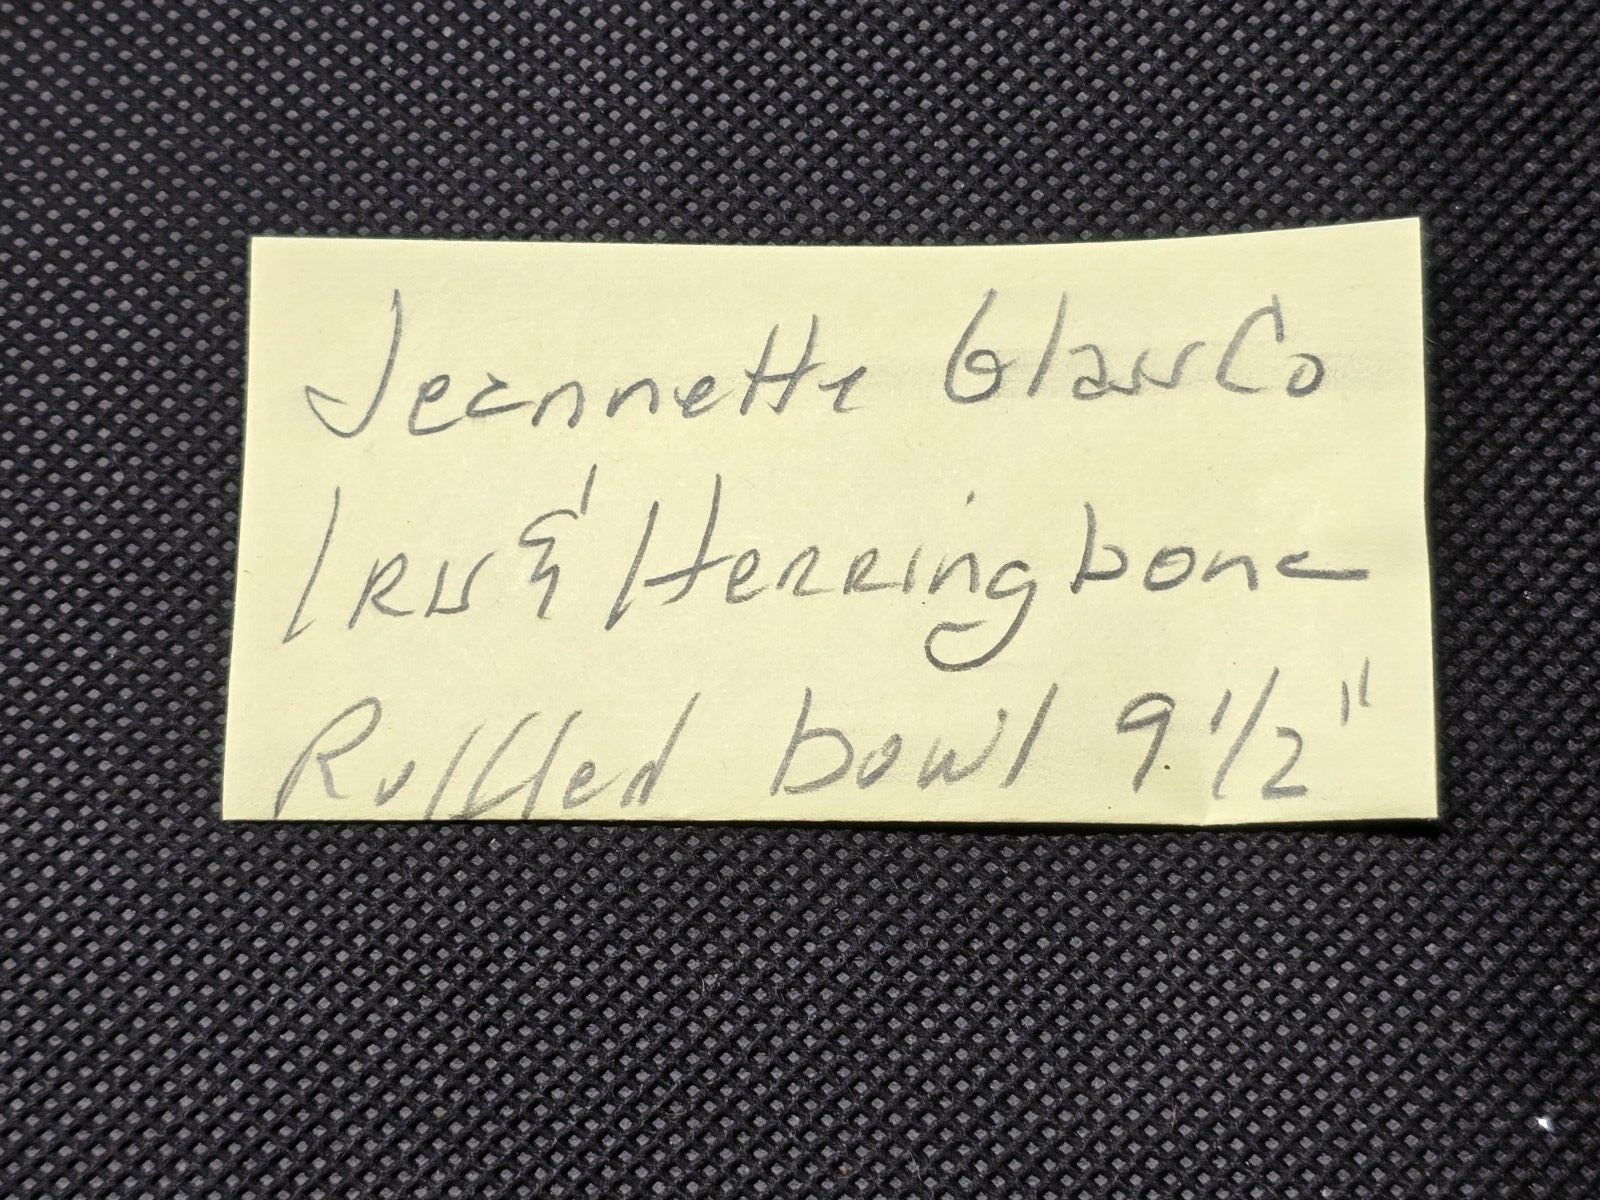 Jeannette Glass Co
Iris & Herringbone
Ruffled bowl 9 1/2"